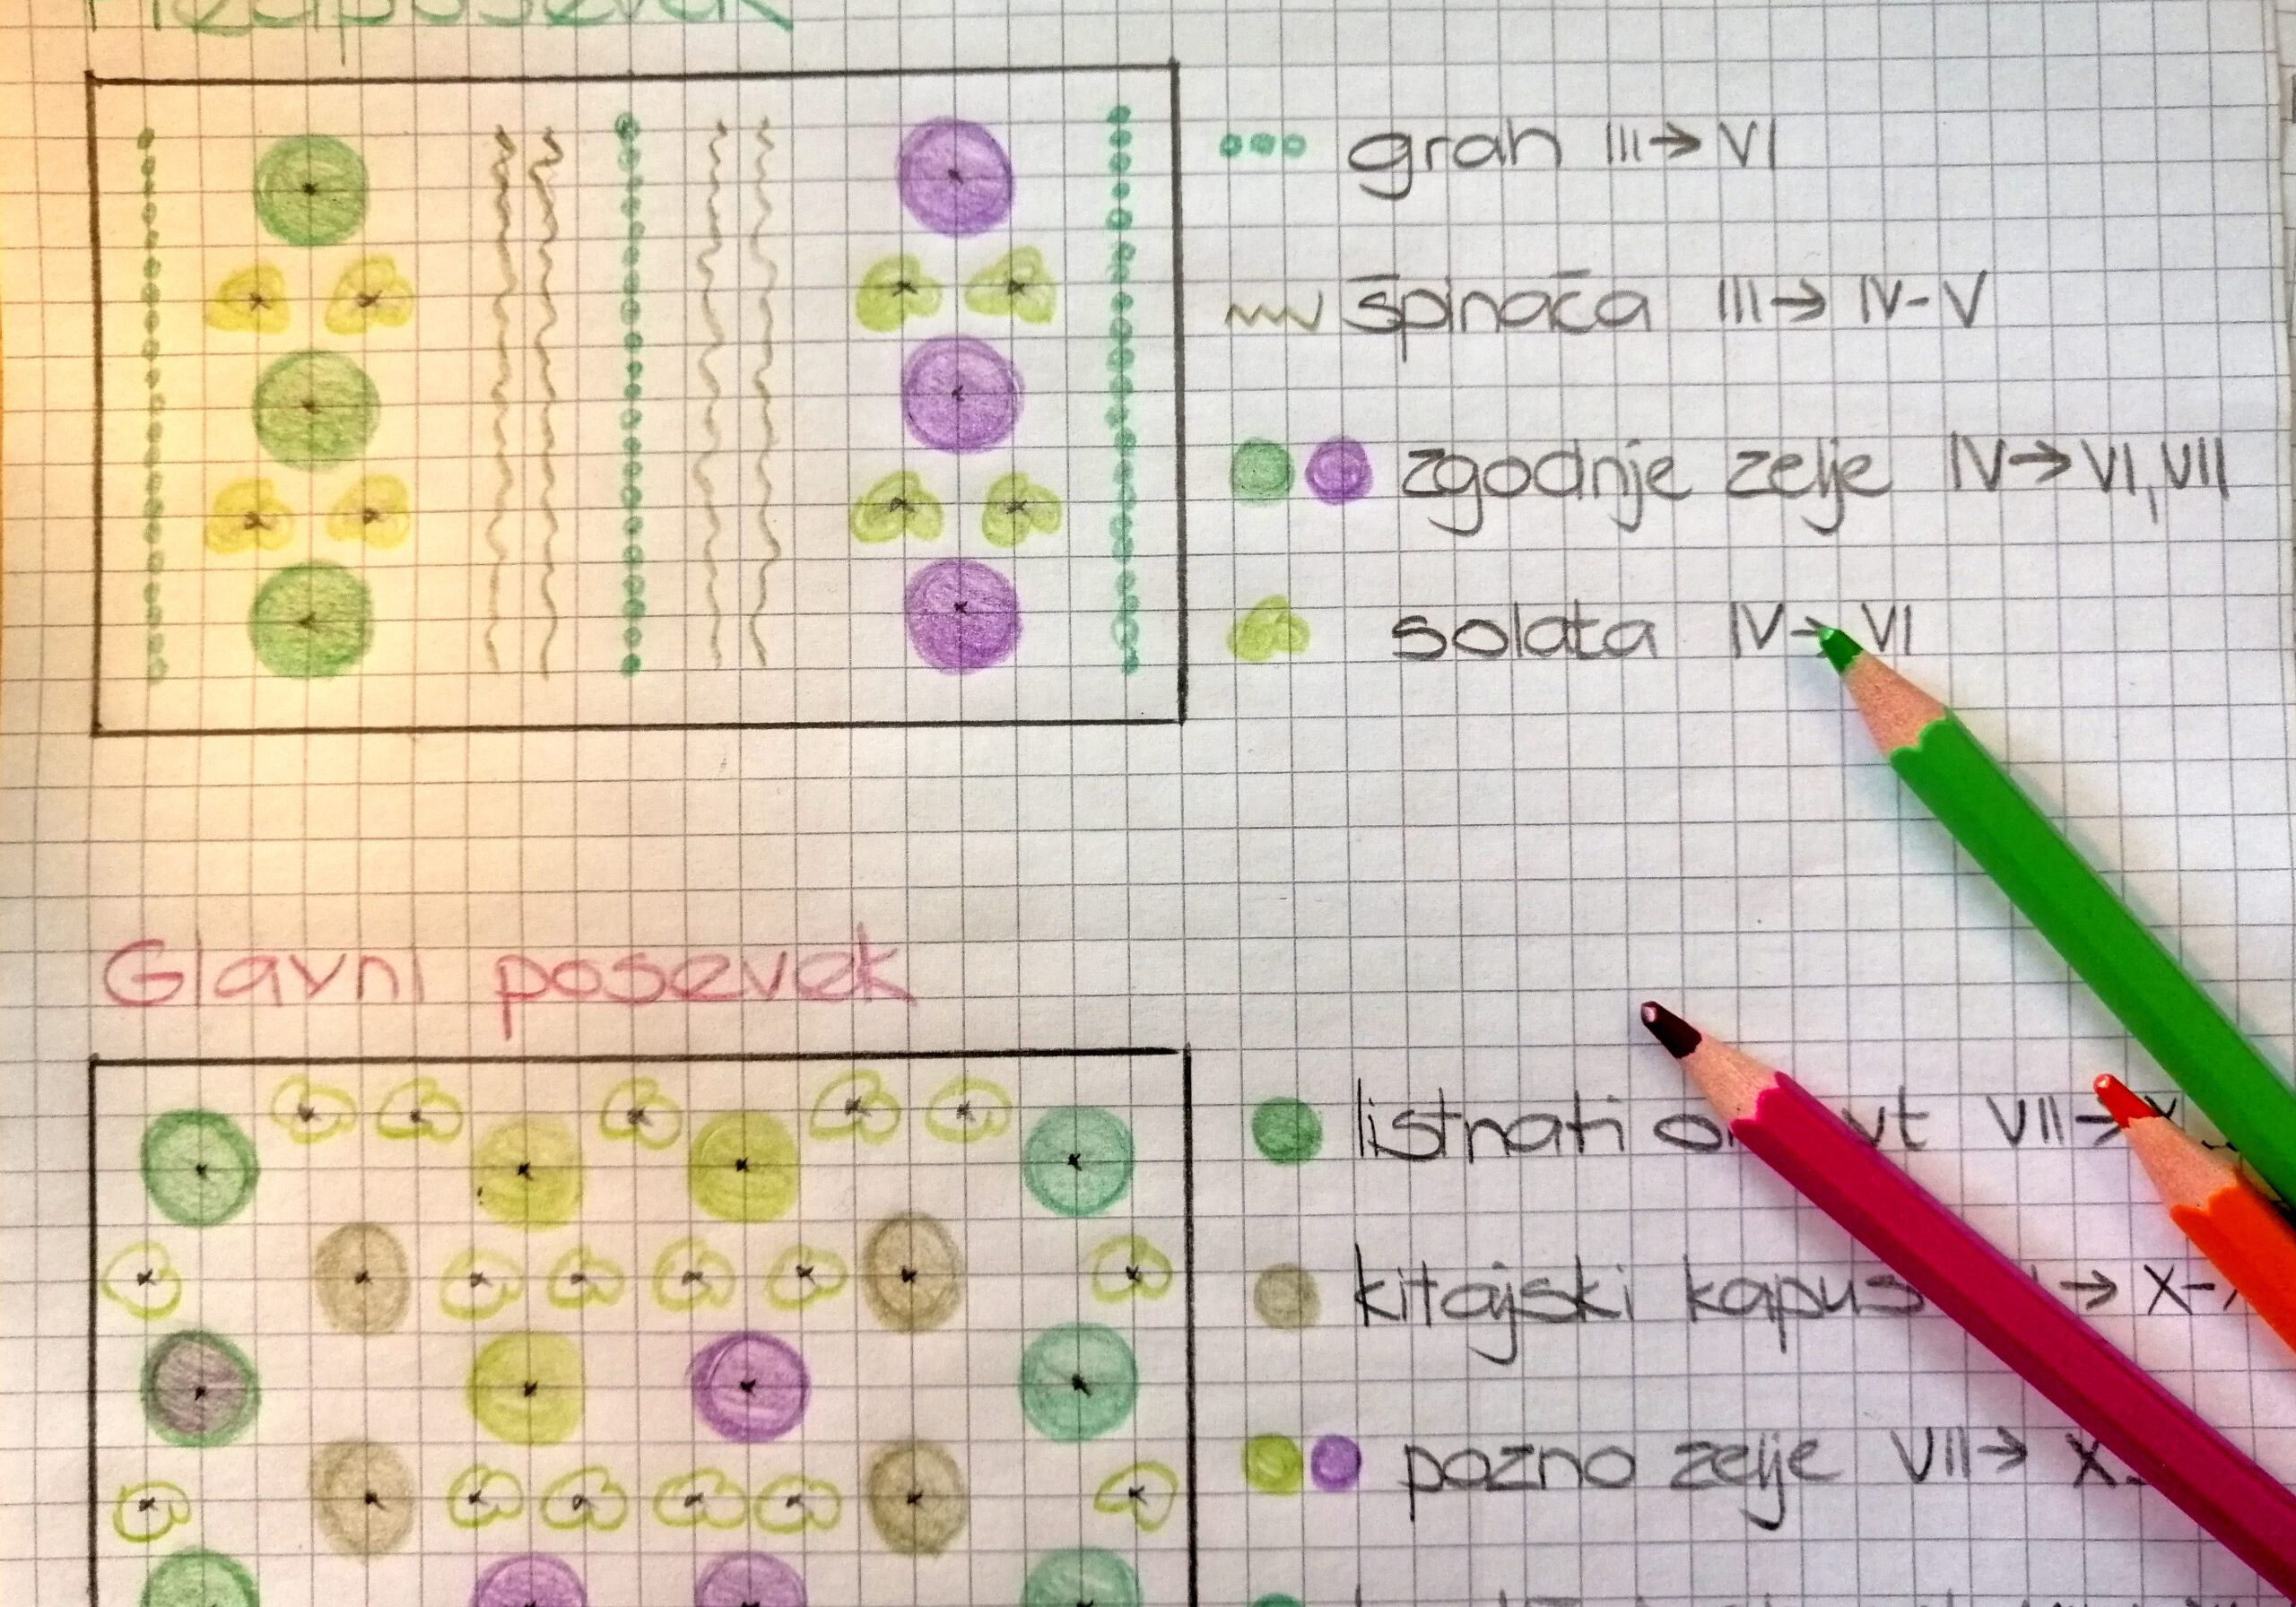 Predposevek
grah III → VI
špinača III → IV-V
zgodnje zelje IV → VI, VII
solata IV → VI
Glavni posevek
listnati VII →
kitajski → X-
pozno zelje VII → X